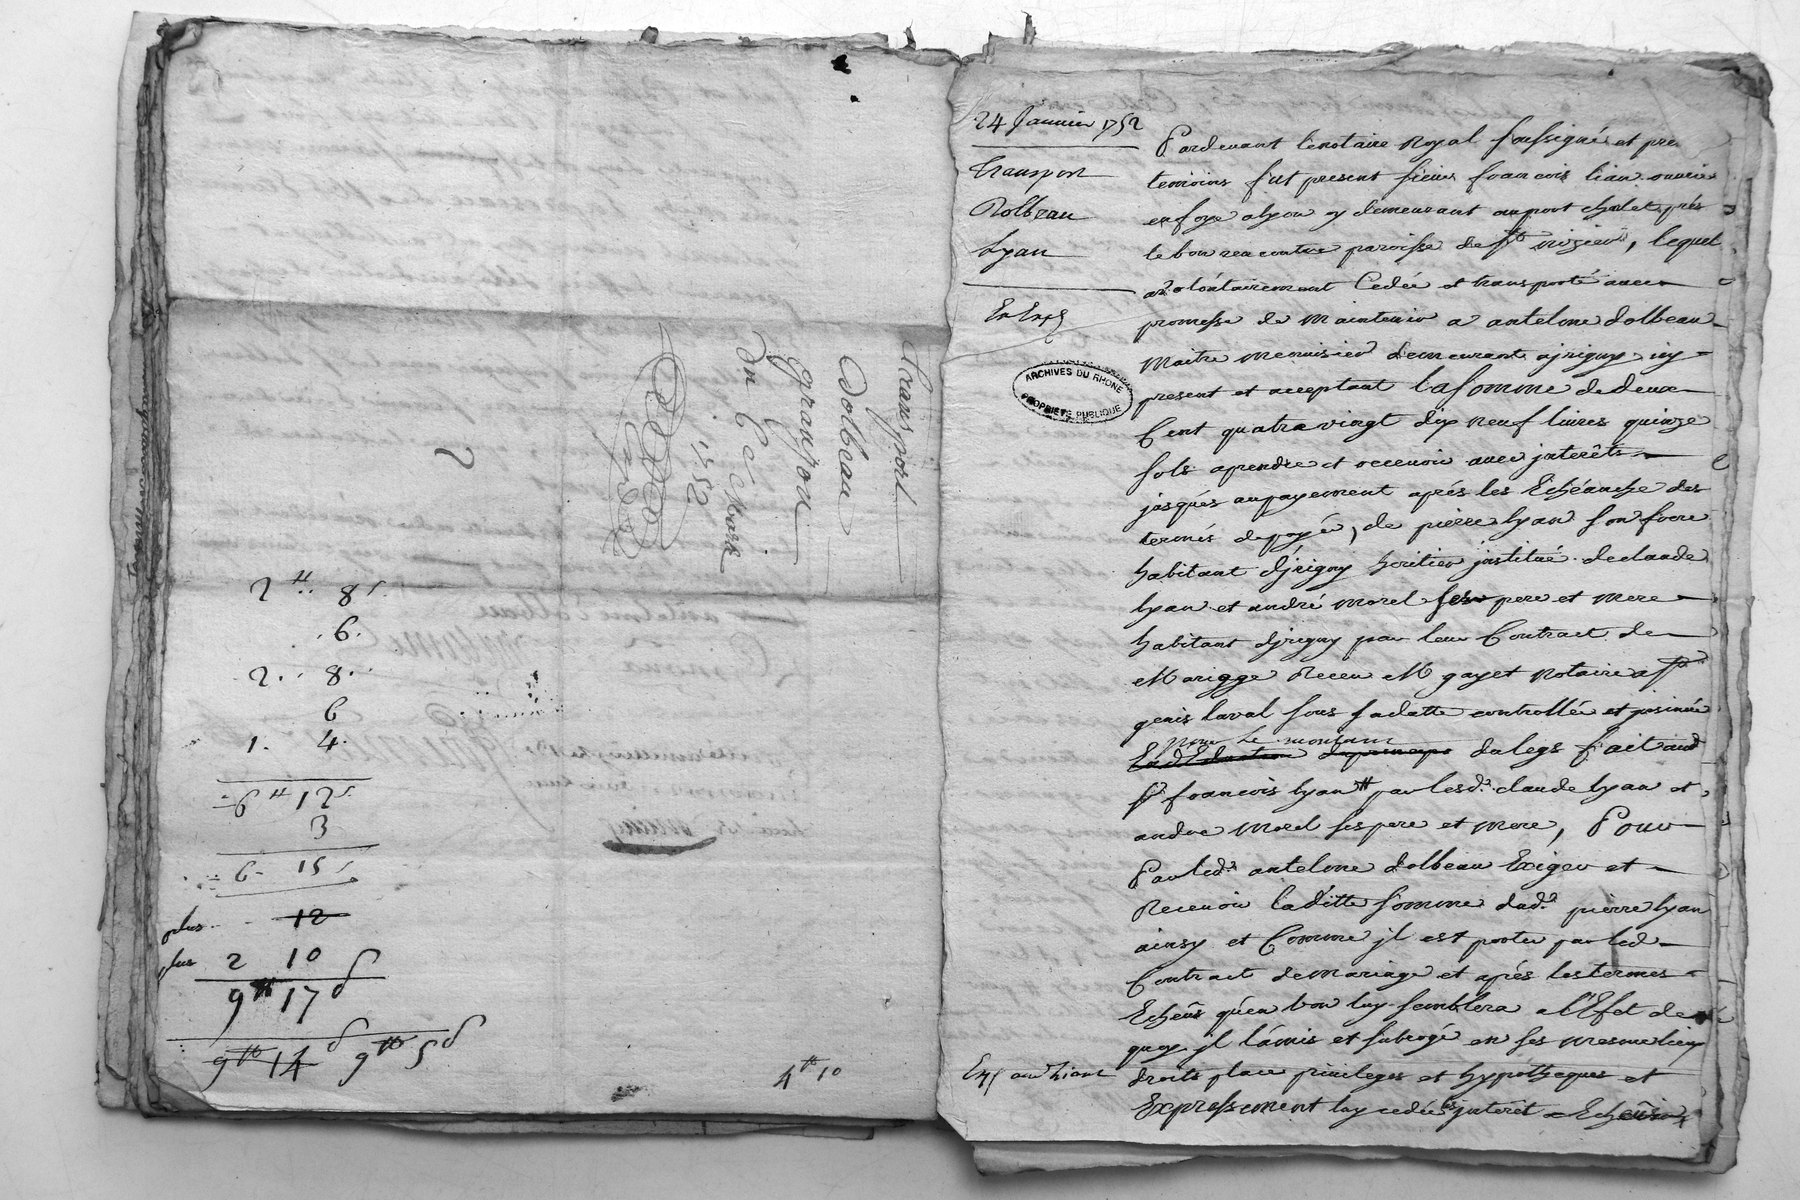 Transport
Dolbeau
granjon
Du 6e Mars
1752
2 ₶ 8 s
6
2 8
6
1 4
12 ₶ 6
3
15 6
plus 12
plus 2 10 s
9 ₶ 17 s
9 ₶ 14 s 9 ₶ 5 s
4 ₶ 10
24 Janvier 1752
Transport
Dolbeau
Lyan
ARCHIVES DU RHONE
PROPRIETE PUBLIQUE
Pardevant le notaire Royal soussigné et
temoins fut present sieur francois lian ouvrier
en soye a lyon y demeurant au port chalet prés
le bon rencontre paroisse de st nizier, lequel
a volontairement Cedée et transporté avec
promesse de maintenir a antelme dolbeau
Maitre menuisier demeurant a jrigny icy
present et acceptant la somme de deux
Cent quatre vingt dix neuf livres quinze
sols a prendre et recevoir avec jnterêts
jusqués au payement aprés les Echéanche des
termés de payé, de pierre lyan son frere
habitant djrigny heritier jnstitué de claude
lyan et andré morel ses pere et mere
habitant djrigny par leur Contract de
Mariage Receu Me gayet notaire a st
genis laval sous sa datte controllé et jnsinué
pour le montant
du legs fait aud
sr francois lyan par lesd. claude lyan et
andre morel ses pere et mere, Pour
Par led. antelme dolbeau Exiger et
Recevoir laditte somme dud. pierre lyan
ainsy et Comme jl est porté par led
Contract de mariage et aprés les termes
Echeus quén bon luy semblera a l'Efet de
quoy jl lámis et subrogé en ses mesme lieux
droits place privileges et hypothecques et
Expressement luy cedée les jnterêt Echeus